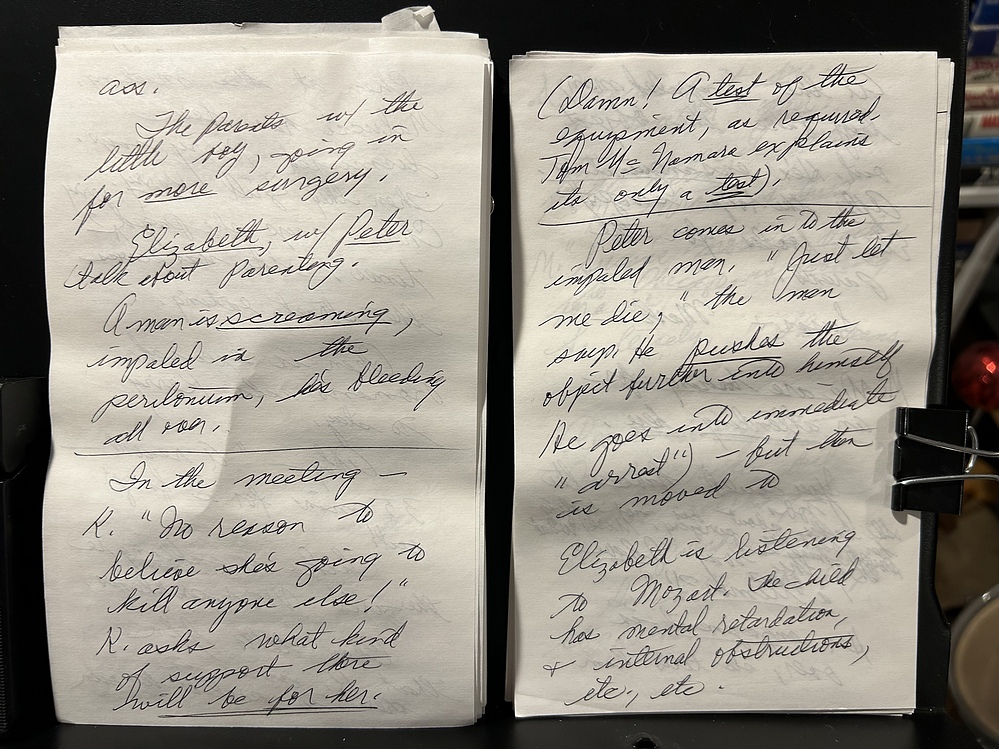 ass.
The parents w/ the
little boy, going in
for more surgery.
Elizabeth, w/ Peter
talk about Parenting.
A man is screaming,
impaled in the
peritonium, his bleeding
all over.
In the meeting —
K. "No reason to
believe she's going to
kill anyone else!"
K. asks what kind
of support there
will be for her.
(Damn! A test of the
equipment, as required.
Tom McNamara explains
its only a test).
Peter comes in to the
impaled man. "Just let
me die," the man
says. He pushes the
object further into himself
He goes into immediate
"arrest") – but then
is moved to
Elizabeth is listening
to Mozart. The child
has mental retardation,
& internal obstructions,
etc., etc.